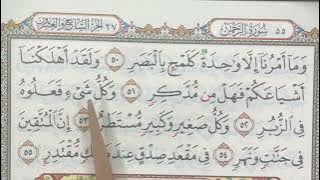 ٥٥ سُورَةُ الرَّحْمٰن ٢٧ الجزء السابع والعشرون
وَمَا أَمْرُنَا إِلَّا وَاحِدَةٌ كَلَمْحٍ بِالْبَصَرِ ٥٠ وَلَقَدْ أَهْلَكْنَا
أَشْيَاعَكُمْ فَهَلْ مِنْ مُدَّكِرٍ ٥١ وَكُلُّ شَيْءٍ فَعَلُوهُ
فِي الزُّبُرِ ٥٢ وَكُلُّ صَغِيرٍ وَكَبِيرٍ مُسْتَطَرٌ ٥٣ إِنَّ الْمُتَّقِينَ
فِي جَنَّاتٍ وَنَهَرٍ ٥٤ فِي مَقْعَدِ صِدْقٍ عِنْدَ مَلِيكٍ مُقْتَدِرٍ ٥٥